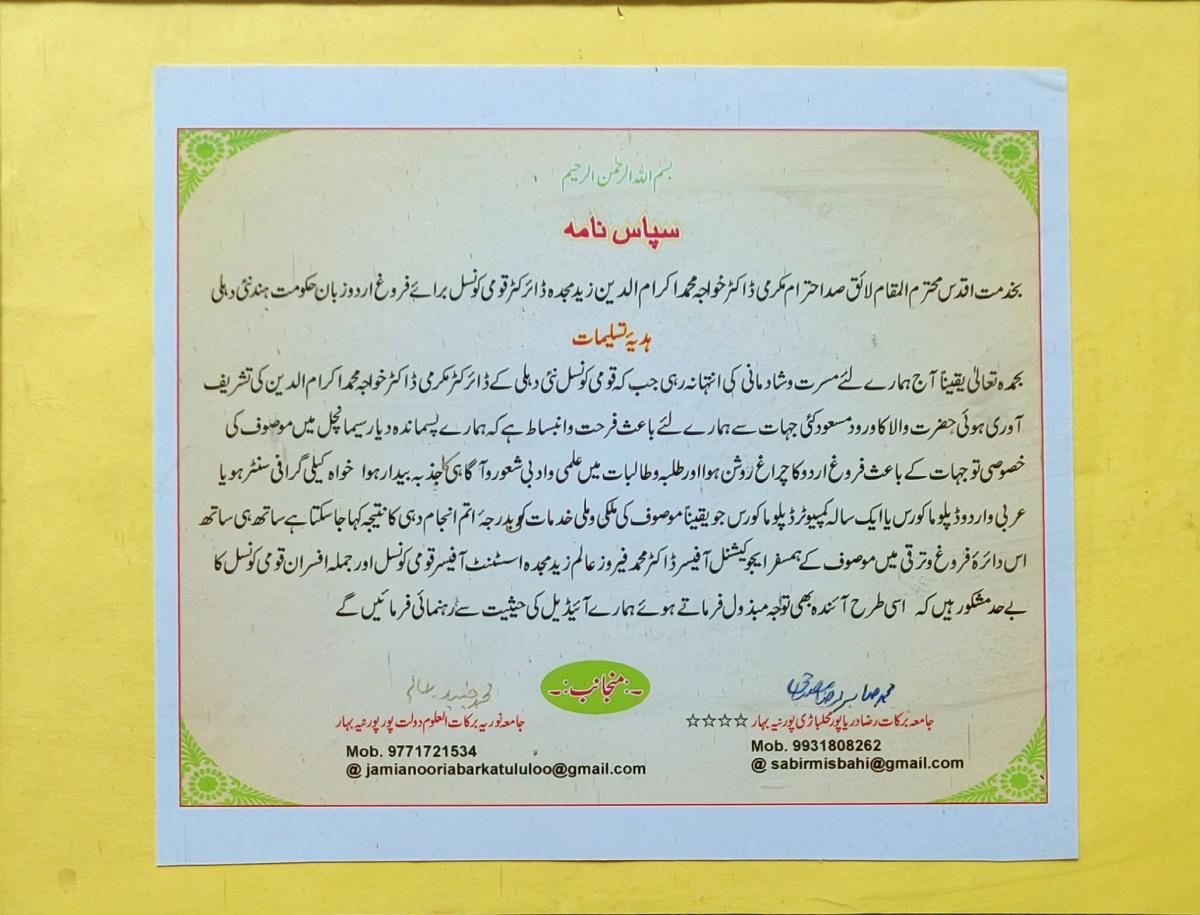 بسم اللہ الرحمن الرحیم
سپاس نامہ
بخدمت اقدس محترم المقام لائق صد احترام مکرمی ڈاکٹر خواجہ محمد اکرام الدین زید مجدہ ڈائرکٹر قومی کونسل برائے فروغ اردو زبان حکومت ہند نئی دہلی
ہدیۂ تسلیمات
بحمدہ تعالیٰ یقیناً آج ہمارے لئے مسرت و شادمانی کی انتہا نہ رہی جب کہ قومی کونسل نئی دہلی کے ڈائرکٹر مکرمی ڈاکٹر خواجہ محمد اکرام الدین کی تشریف
آوری ہوئی حضرت والا کا ورود مسعود کئی جہات سے ہمارے لئے باعث فرحت و انبساط ہے کہ ہمارے پسماندہ دیار سیمانچل میں موصوف کی
خصوصی توجہات کے باعث فروغ اردو کا چراغ روشن ہوا اور طلبہ و طالبات میں علمی و ادبی شعور و آگاہی کا جذبہ بیدار ہوا خواہ کیلی گرافی سنٹر ہو یا
عربی و اردو ڈپلوما کورس یا ایک سالہ کمپیوٹر ڈپلوما کورس جو یقیناً موصوف کی ملکی و ملی خدمات کو بدرجۂ اتم انجام دہی کا نتیجہ کہا جا سکتا ہے ساتھ ہی ساتھ
اس دائرۂ فروغ و ترقی میں موصوف کے ہمسفر ایجوکیشنل آفیسر ڈاکٹر محمد فیروز عالم زید مجدہ اسسٹنٹ آفیسر قومی کونسل اور جملہ افسران قومی کونسل کا
بے حد مشکور ہیں کہ اسی طرح آئندہ بھی توجہ مبذول فرماتے ہوئے ہمارے آئیڈیل کی حیثیت سے رہنمائی فرمائیں گے
۔:منجانب:۔
جامعہ برکات رضا دریاپور گلاباڑی پورنیہ بہار ☆☆☆☆
Mob. 9931808262
@ sabirmisbahi@gmail.com
جامعہ نوریہ برکات العلوم دولت پور پورنیہ بہار
Mob. 9771721534
@ jamianooriabarkatululoo@gmail.com